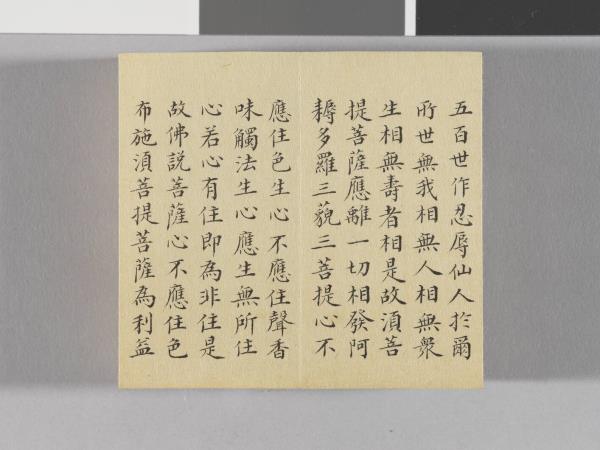 五百世作忍辱仙人於爾
所世無我相無人相無衆
生相無壽者相是故湏菩
提菩薩應離一切相發阿
耨多羅三藐三菩提心不
應住色生心不應住聲香
味觸法生心應生無所住
心若心有住即為非住是
故佛説菩薩心不應住色
布施湏菩提菩薩為利益